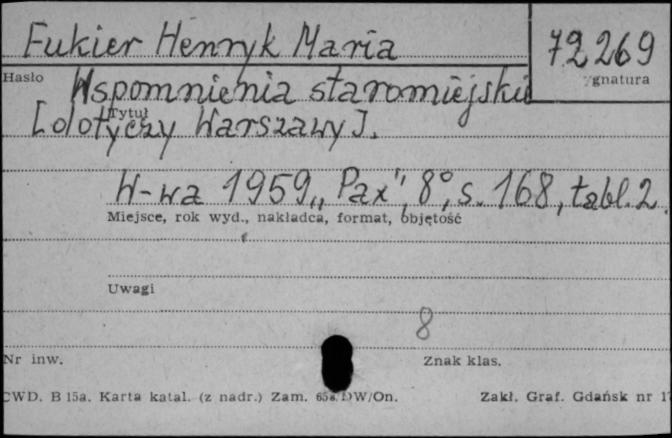 Fukier Henryk Maria
72269
Hasło
Sygnatura
Wspomnienia staromiejskie
Tytuł
[dotyczy Warszawy].
W-wa 1959, „Pax", 8°, s. 168, tabl. 2.
Miejsce, rok wyd., nakładca, format, objętość
Uwagi
8
Nr inw.
Znak klas.
CWD. B 15a. Karta katal. (z nadr.) Zam. 658/DW/On.
Zakł. Graf. Gdańsk nr